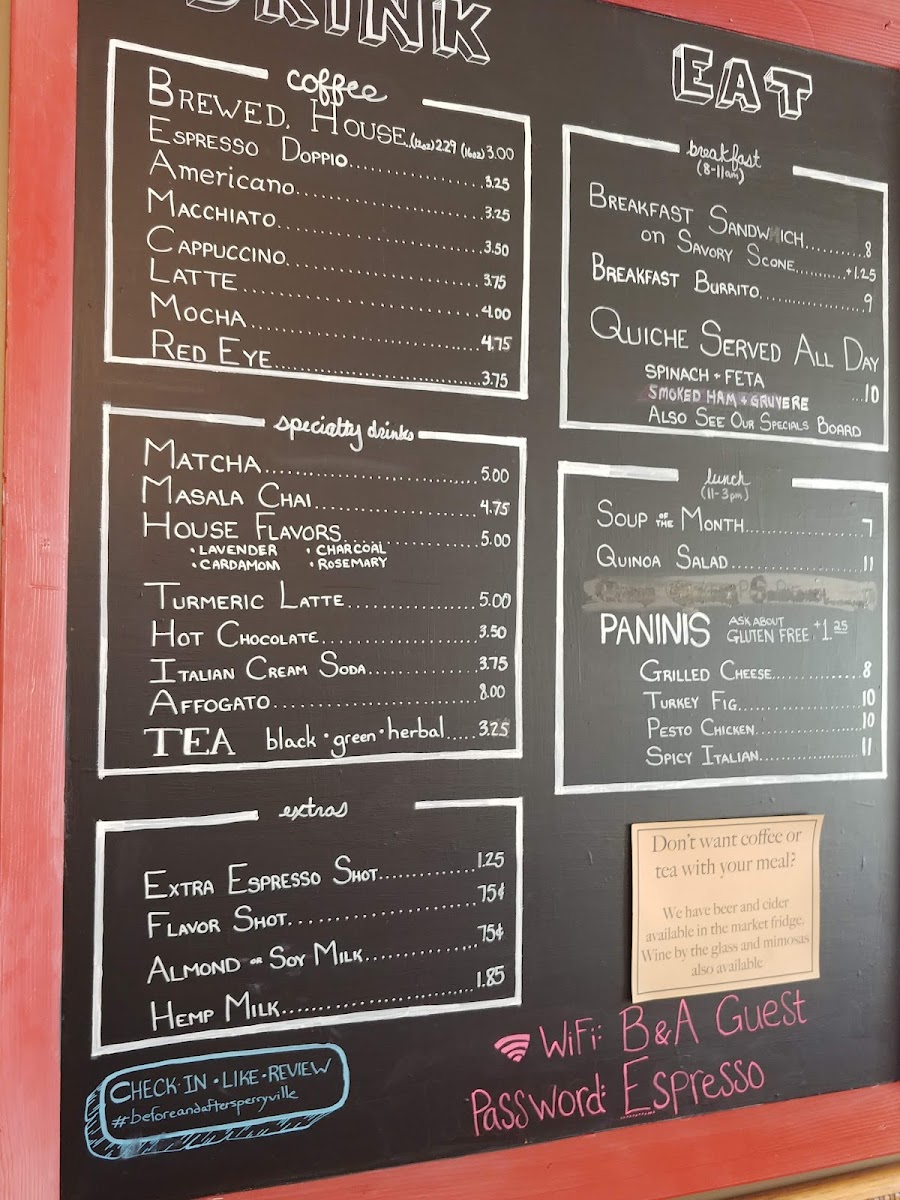 DRINK
coffee
BREWED, HOUSE..(12oz)2.29 (16oz)3.00
ESPRESSO DOPPIO.....3.25
AMERICANO.....3.25
MACCHIATO.....3.50
CAPPUCCINO.....3.75
LATTE.....4.00
MOCHA.....4.75
RED EYE.....3.75
specialty drinks
MATCHA.....5.00
MASALA CHAI.....4.75
HOUSE FLAVORS.....5.00
• LAVENDER • CHARCOAL
• CARDAMOM • ROSEMARY
TURMERIC LATTE.....5.00
HOT CHOCOLATE.....3.50
ITALIAN CREAM SODA.....3.75
AFFOGATO.....8.00
TEA black • green • herbal.....3.25
extras
EXTRA ESPRESSO SHOT.....1.25
FLAVOR SHOT.....75¢
ALMOND OR SOY MILK.....75¢
HEMP MILK.....1.85
CHECK-IN • LIKE • REVIEW
#beforeandaftersperryville
EAT
breakfast
(8-11am)
BREAKFAST SANDWICH.....8
on SAVORY SCONE.....+1.25
BREAKFAST BURRITO.....9
QUICHE SERVED ALL DAY
SPINACH + FETA
SMOKED HAM + GRUYERE ...10
ALSO SEE OUR SPECIALS BOARD
lunch
(11-3pm)
SOUP OF THE MONTH.....7
QUINOA SALAD.....11
PANINIS ASK ABOUT GLUTEN FREE +1.25
GRILLED CHEESE.....8
TURKEY FIG.....10
PESTO CHICKEN.....10
SPICY ITALIAN.....11
Don't want coffee or
tea with your meal?
We have beer and cider
available in the market fridge.
Wine by the glass and mimosas
also available
WiFi: B&A Guest
Password: Espresso